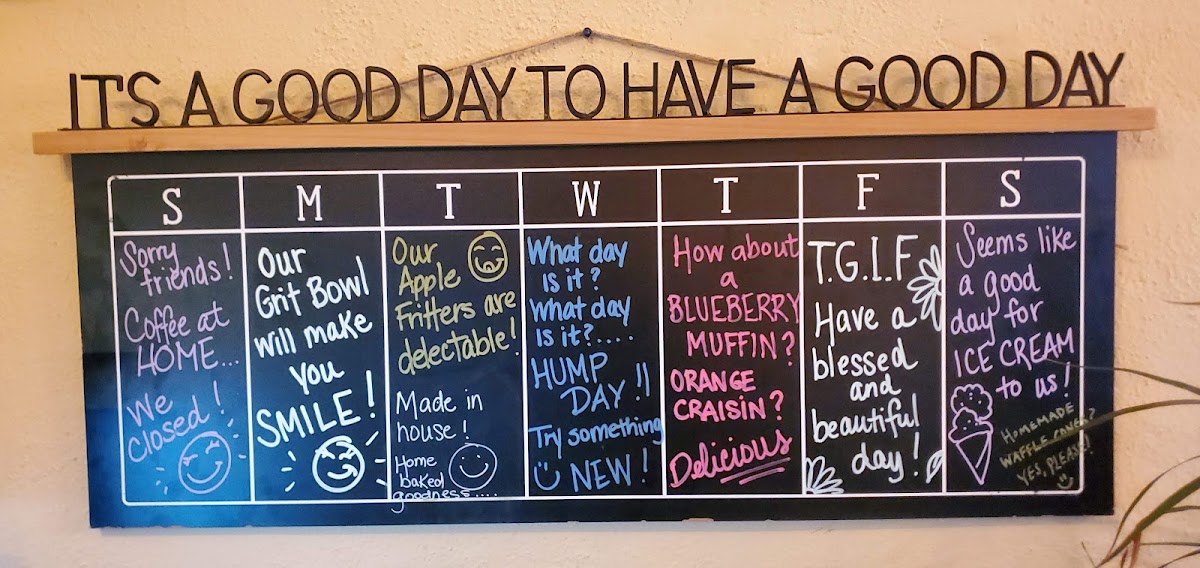 IT'S A GOOD DAY TO HAVE A GOOD DAY
S
Sorry
friends!
Coffee at
HOME...
We
closed!
M
Our
Grit Bowl
will make
you
SMILE!
T
Our
Apple
Fritters are
delectable!
Made in
house!
Home
baked
goodness....
W
What day
is it?
What day
is it?....
HUMP
DAY!!
Try something
NEW!
T
How about
a
BLUEBERRY
MUFFIN?
ORANGE
CRAISIN?
Delicious
F
T.G.I.F
Have a
blessed
and
beautiful
day!
S
Seems like
a good
day for
ICE CREAM
to us!
HOMEMADE
WAFFLE CONES?
YES, PLEASE!